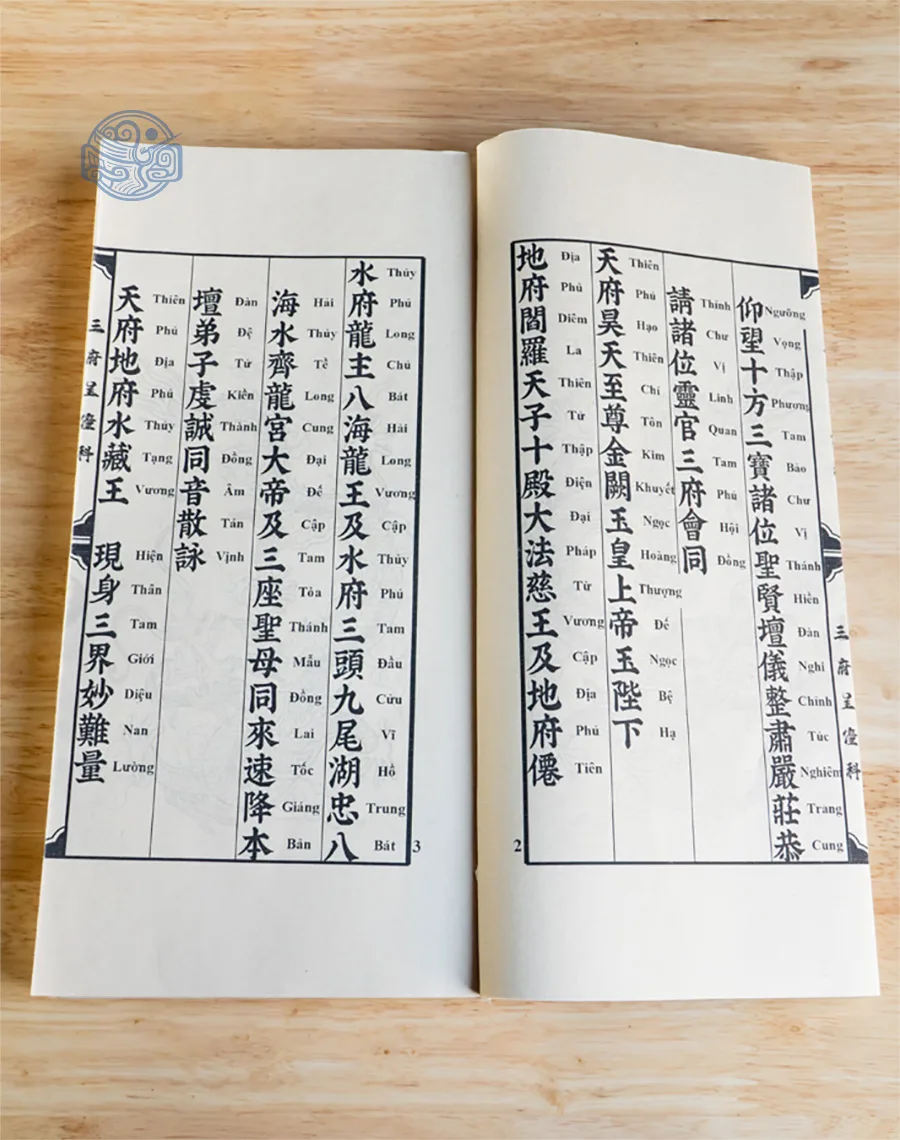 仰望十方三寶諸位聖賢壇儀整肅嚴莊恭
Ngưỡng Vọng Thập Phương Tam Bảo Chư Vị Thánh Hiền Đàn Nghi Chỉnh Túc Nghiêm Trang Cung
請諸位靈官三府會同
Thỉnh Chư Vị Linh Quan Tam Phủ Hội Đồng
天府昊天至尊金闕玉皇上帝玉陛下
Thiên Phủ Hạo Thiên Chí Tôn Kim Khuyết Ngọc Hoàng Thượng Đế Ngọc Bệ Hạ
地府閻羅天子十殿大法慈王及地府僊
Địa Phủ Diêm La Thiên Tử Thập Điện Đại Pháp Từ Vương Cập Địa Phủ Tiên
三府呈科
2
水府龍主八海龍王及水府三頭九尾湖忠八
Thủy Phủ Long Chủ Bát Hải Long Vương Cập Thủy Phủ Tam Đầu Cửu Vĩ Hồ Trung Bát
海水齊龍宮大帝及三座聖母同來速降本
Hải Thủy Tề Long Cung Đại Đế Cập Tam Tòa Thánh Mẫu Đồng Lai Tốc Giáng Bản
壇弟子虔誠同音散詠
Đàn Đệ Tử Kiền Thành Đồng Âm Tán Vịnh
天府地府水藏王 現身三界妙難量
Thiên Phủ Địa Phủ Thủy Tạng Vương Hiện Thân Tam Giới Diệu Nan Lường
三府呈科
3